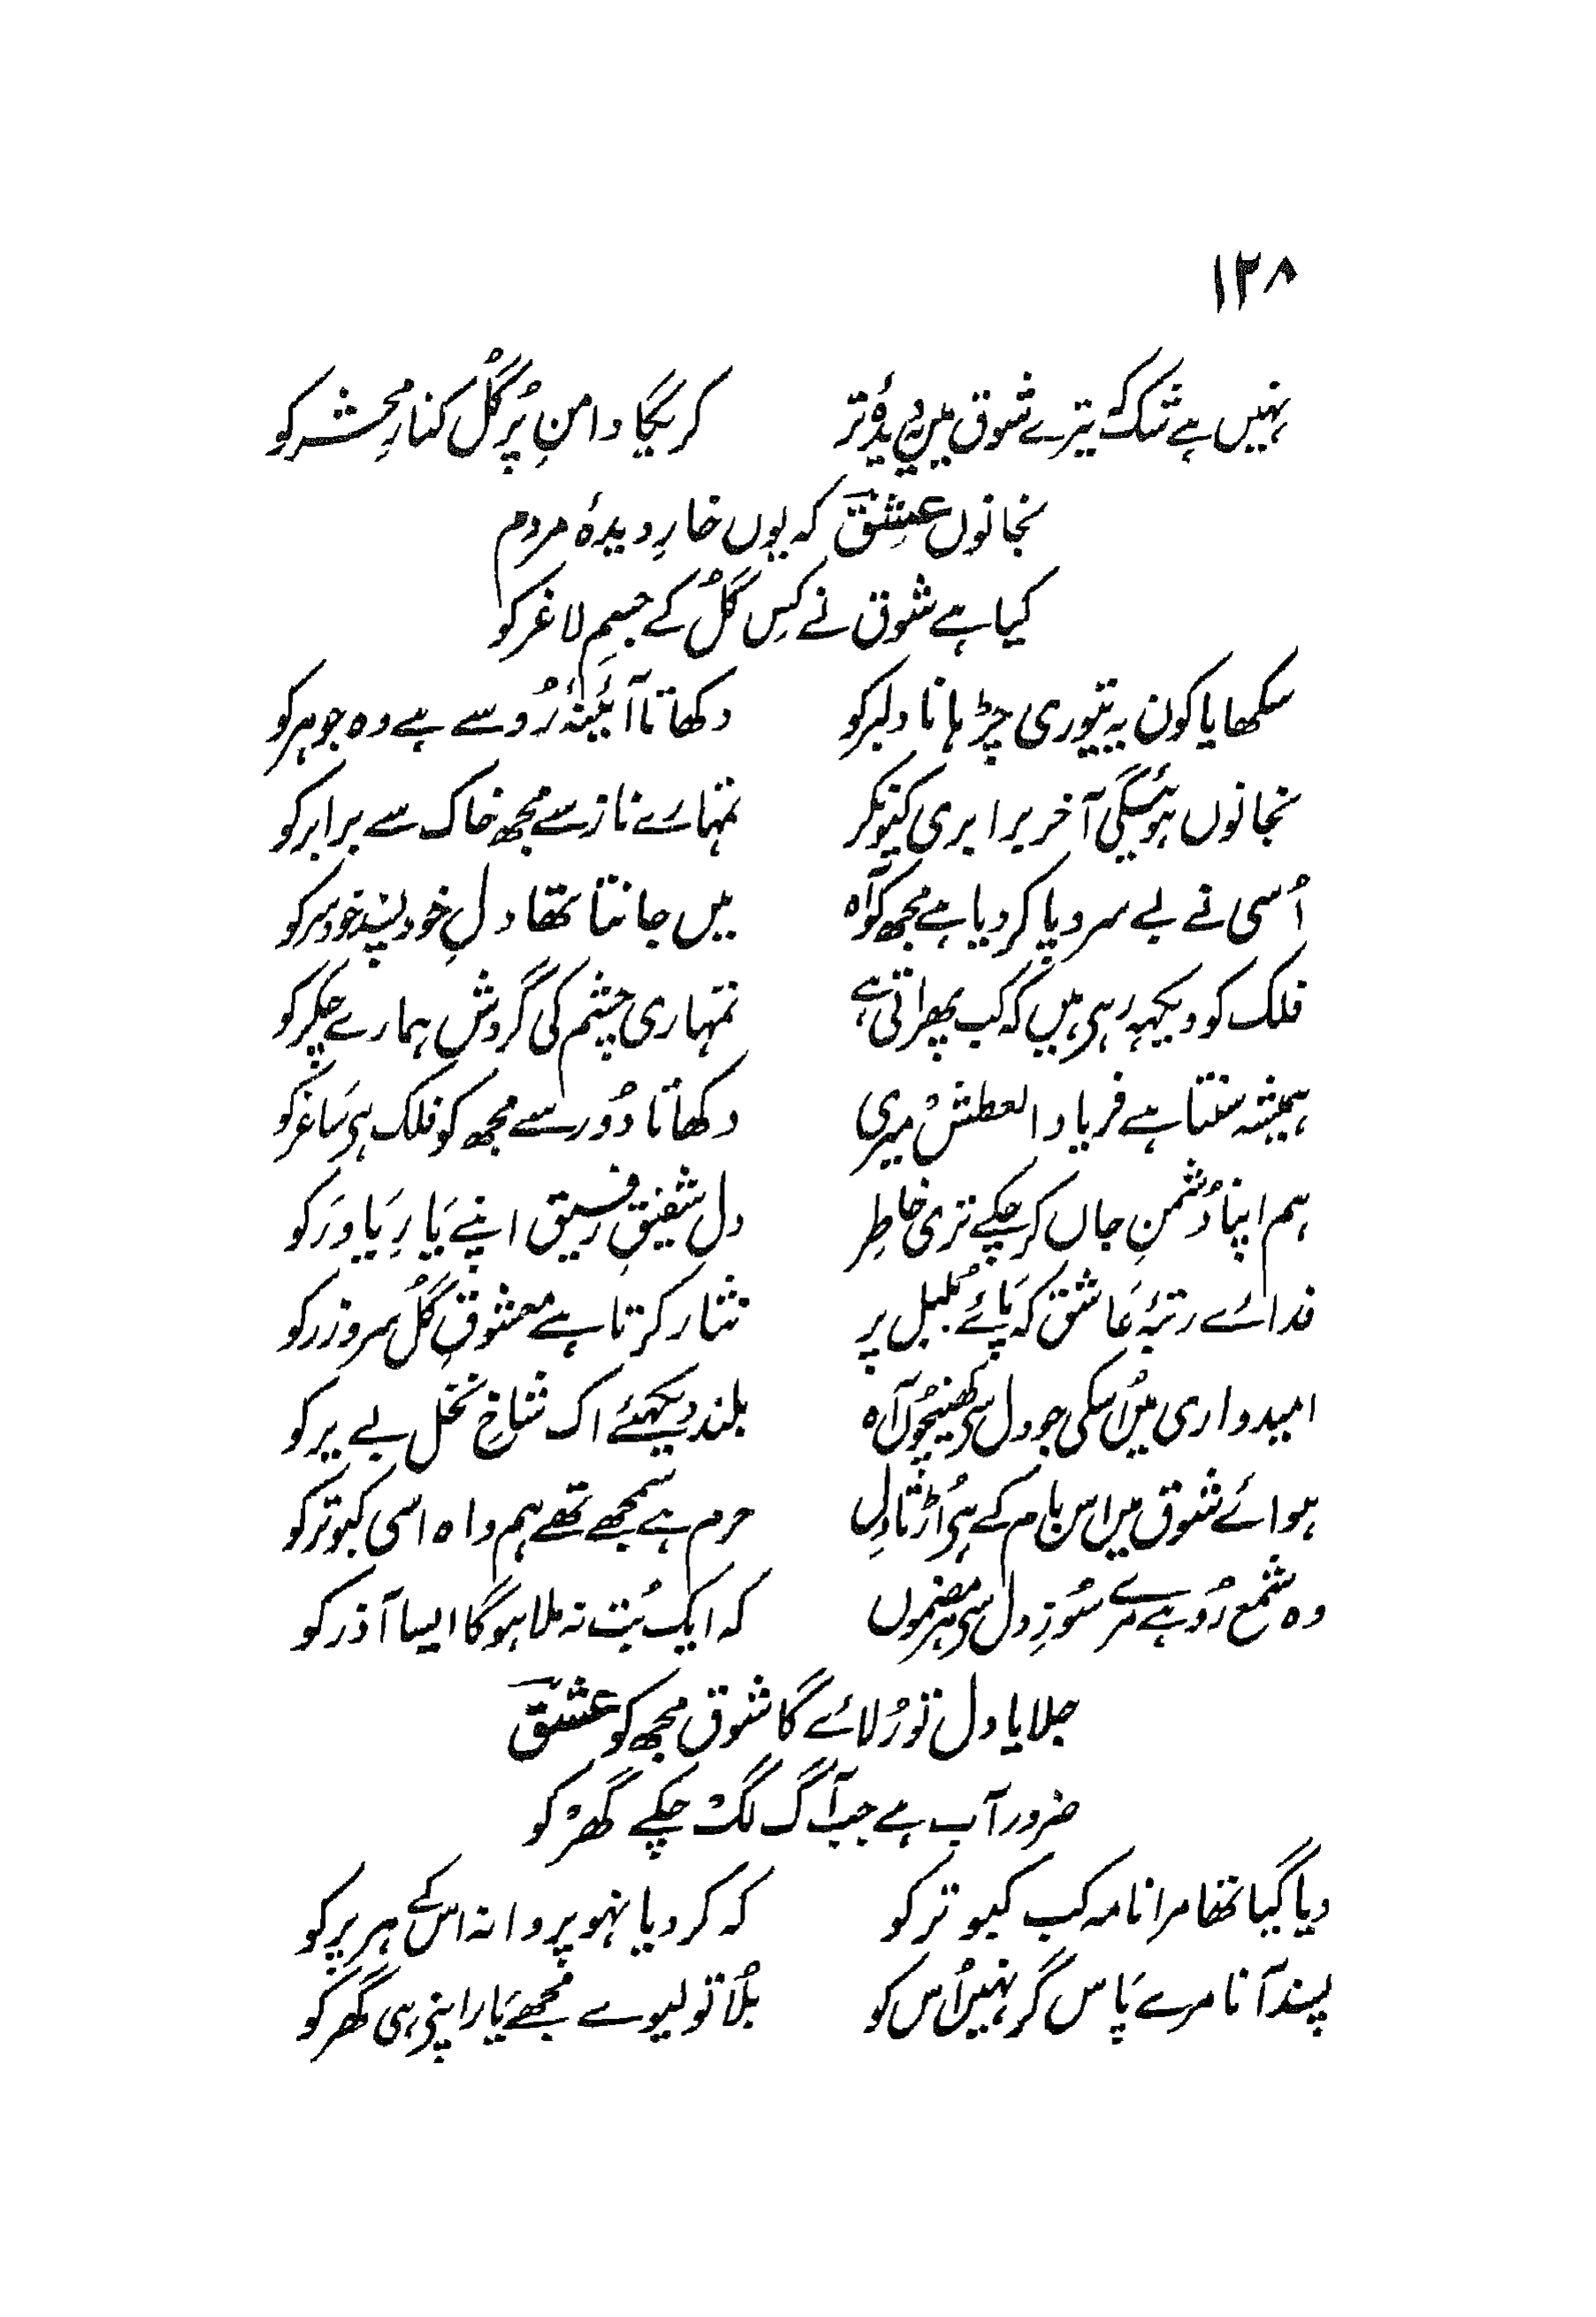 ١٢٨
نہیں ہے شک کہ تیرے شوق میں یہ دیدۂ تر کریگا دامنِ پُر گُل کنارِ محشر کو
نجانوں عشِق کہ یوں خارِ دیدۂ مردم
کیا ہے شوق نے کِس گُل کے جسمِ لاغر کو
سکھایا کون یہ تیوری چڑہانا دلبر کو دکھاتا آئینۂ رُو سے ہے وہ جوہر کو
نجانوں ہوئیگی آخر برابری کیونکر تمہارے ناز سے مجھ خاک سے برابر کو
اُسی نے بے سر و پا کر دیا ہے مجھ کو آہ میں جانتا تھا دلِ خود پسند خود سر کو
فلک کو دیکہہ رہی ہیں کہ کب پھراتی ہے تمہاری چشم کی گردش ہمارے چکر کو
ہمیشہ سنتا ہے فریاد العطش میری دکھاتا دُور سے مجھ کو فلک ہی سَاغر کو
ہم اپنا دُشمنِ جاں کر چکے تری خاطِر دل شفیقِ رفیق اپنے یَارِ یَاور کو
فدائے رتبۂ عَاشق کہ پَائے بُلبل پر نثار کرتا ہے معشوقِ گُل سر و زر کو
امیدواری میں اُسکی جو دل سی کھینچوں آہ بلند دیکہئے اک شاخِ نخل بے بر کو
ہوائے شوق میں اس بام کے ہی اُڑتا دِل حرم ہے سمجھے تھے ہم واہ اسی کبوتر کو
وہ شمع رُو ہے مرے سُوزِ دل سی ہر مضموں کہ ایک بُت نہ ملا ہوگا ایسا آذر کو
جلایا دل تو رُلائے گا شوق مجھ کو عشق
ضرور آب ہے جب آگ لگ چکے گھر کو
دیا گیا تھا مرا نامہ کب کبوتر کو کہ کر دیا نہو پروانہ اس کے ہر پر کو
پسند آنا مرے پَاس گر نہیں اُس کو بلُا تو لیوے مجھے یَار اپنی ہی گھر کو